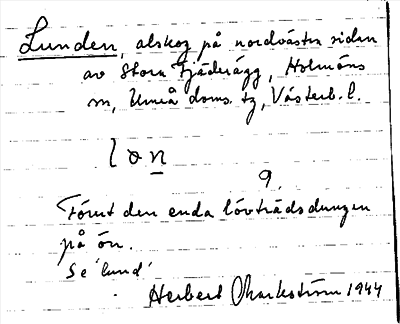 Lunden, alskog på nordvästra sidan
av Stora Fjäderägg, Holmöns
sn, Umeå doms. tg, Västerb. l.
lon
9.
Förut den enda lövträdsdungen
på ön.
Se 'lund'
Herbert Markström 1944